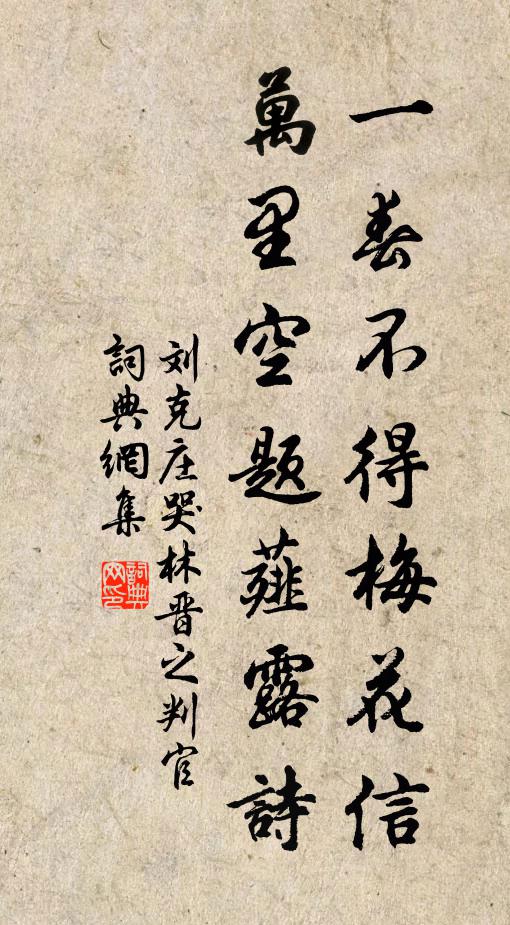 一春不得梅花信
萬里空題薤露詩
刘克庄哭林晋之判官
詞典網集
詞典网印